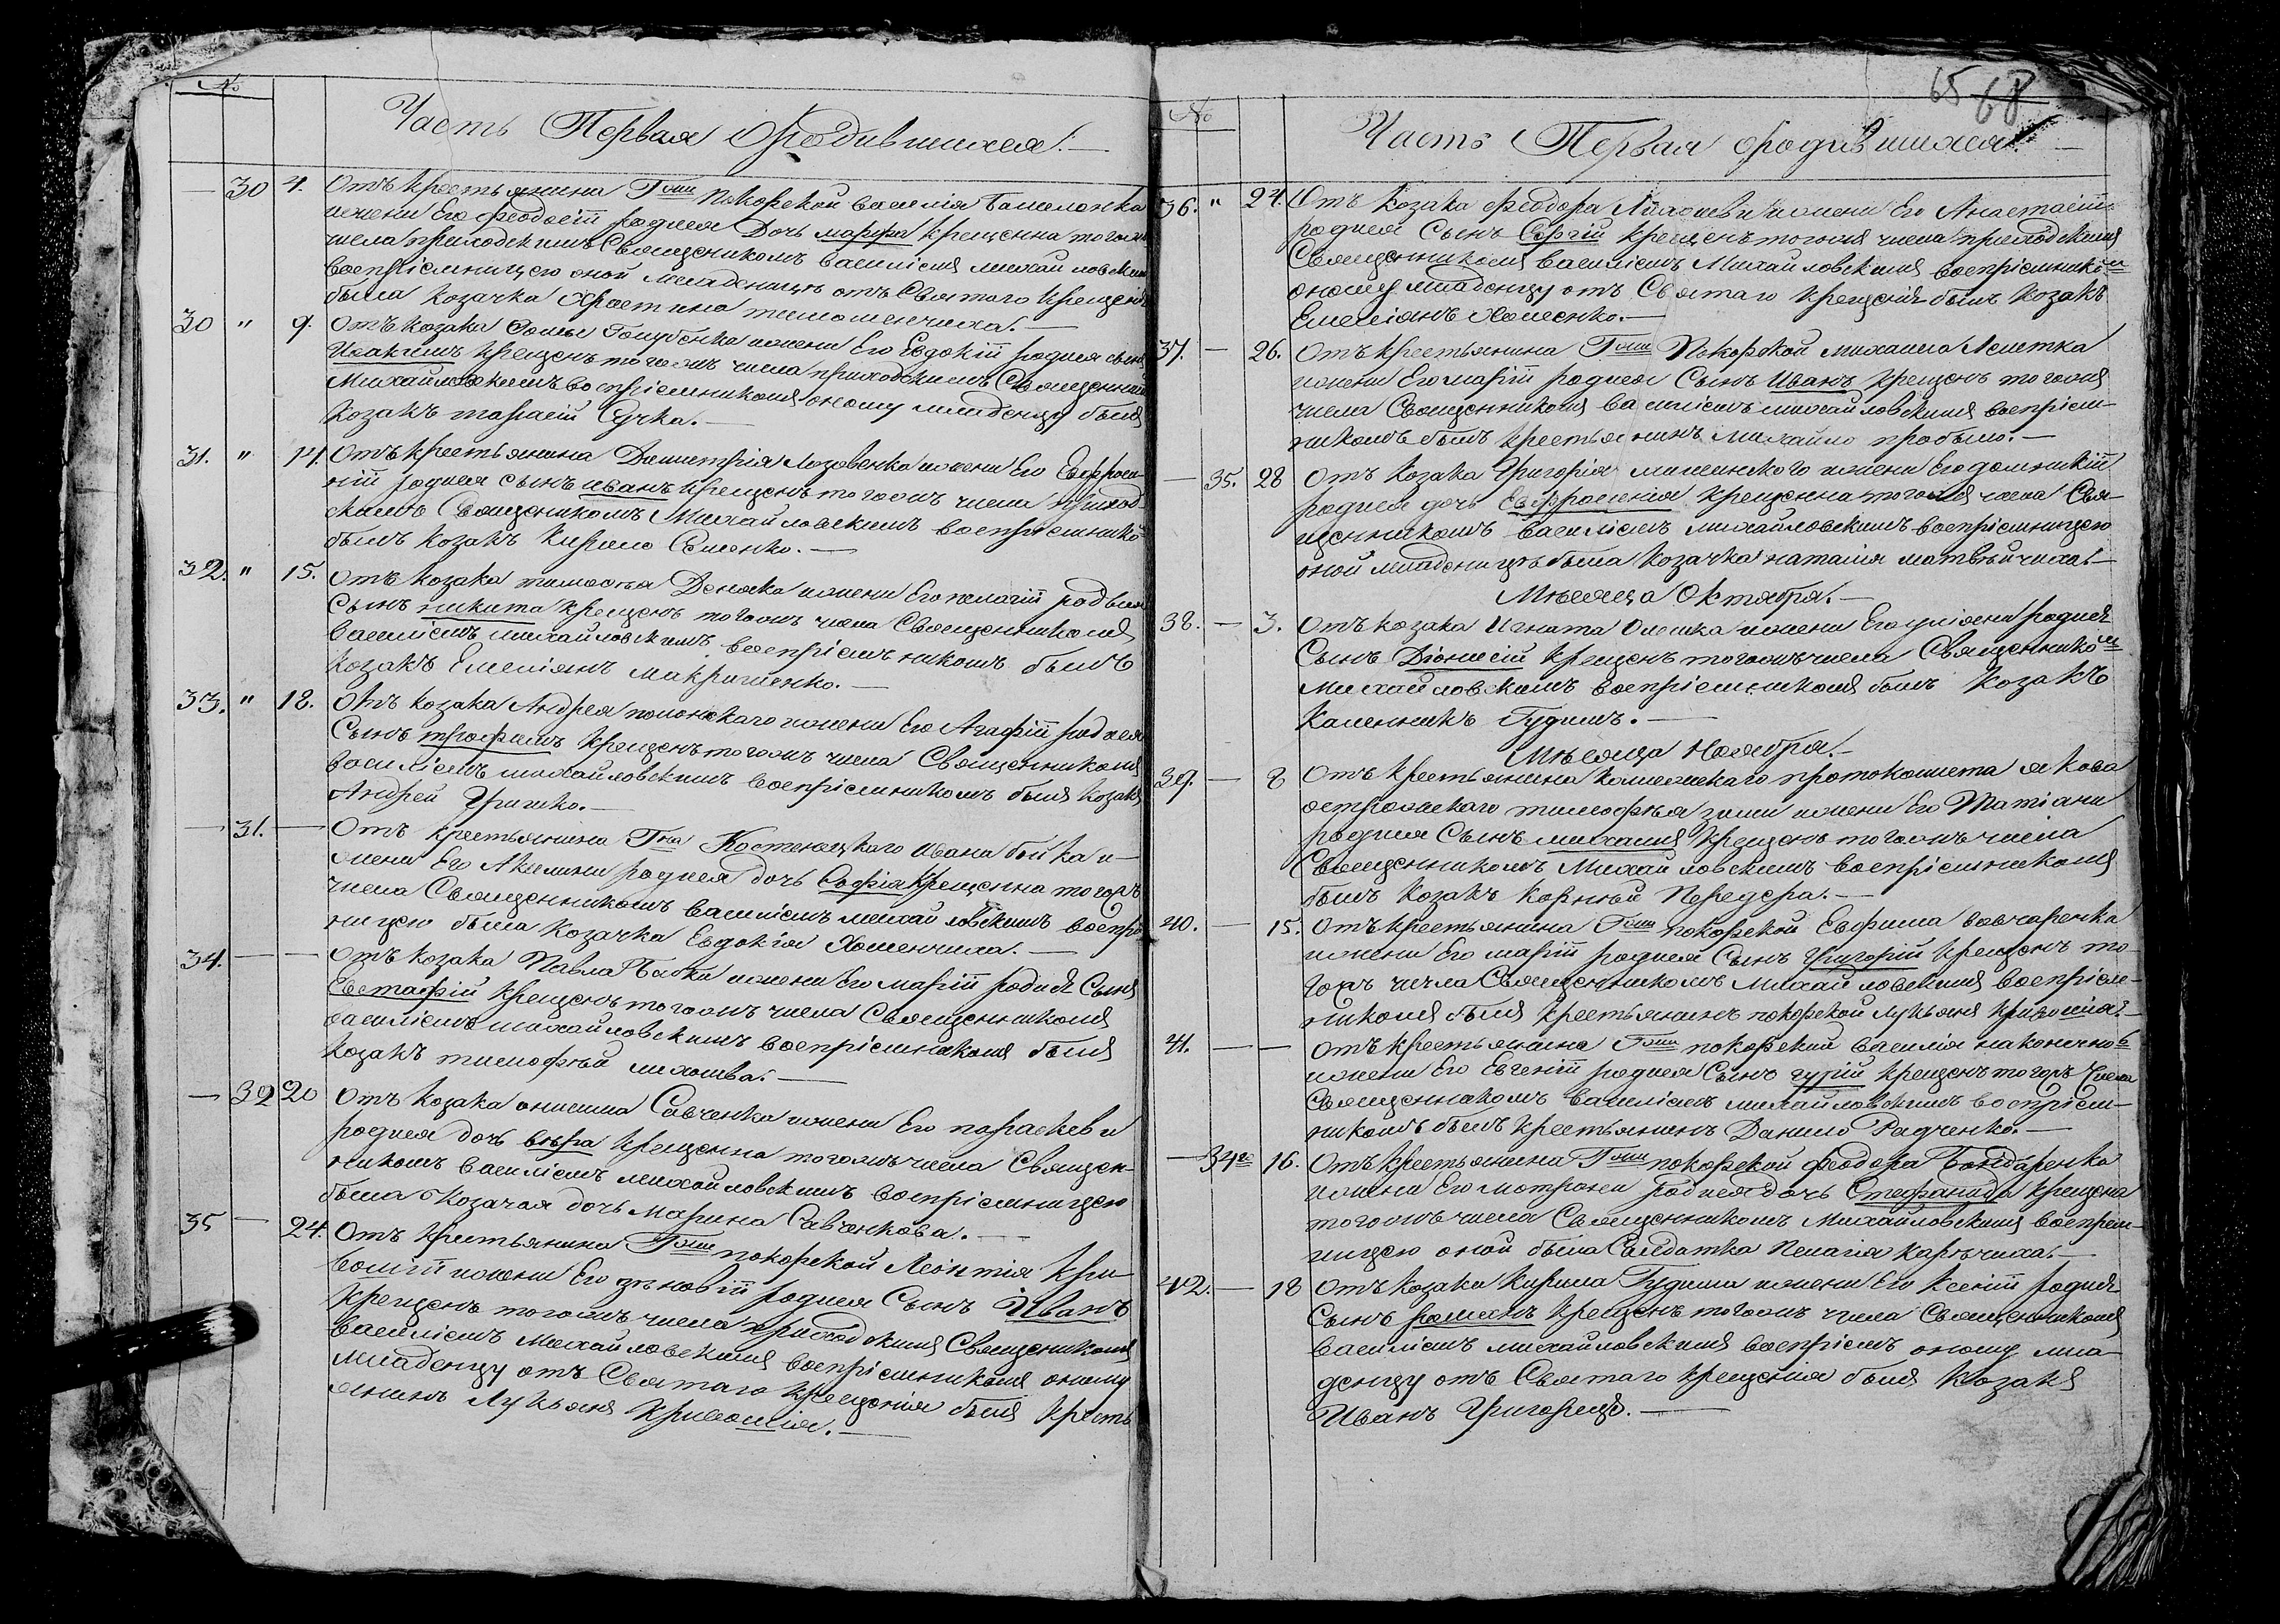 №
Часть Первая ородившихся.
— 30 4. Отъ крестьянина Гжи Покорской Василія
жены Его Феодосіи родися Дочь Марфа крещенна тогожъ
числа приходскимъ Священникомъ Василіемъ Михайловским
воспріемницею оной младеницѣ отъ Святого Крещенія
была козачка Христина Тимошенчиха. —
30 " 9. Отъ козака Голубенка жены Его Евдокіи родися сынъ
Иоакимъ крещенъ тогожъ числа приходскимъ Священником
Михайловскимъ воспріемникомъ оному младенцу былъ
Козакъ Тарасій Сучка. —
31. " 14. Отъ крестьянина Димитрія Лозовенка жены Его Евфроси-
ніи родися сынъ Иванъ крещенъ тогожъ числа приход-
скимъ Священникомъ Михайловскимъ воспріемнико
былъ козакъ Кирило Семенко. —
32. " 15. Отъ козака Тимофея жены Его Пелагіи родися
Сынъ Никита крещенъ тогожъ числа Священникомъ
Василіемъ Михайловскимъ воспріемникомъ былъ
Козакъ Емеліянъ Макришенко. —
33. " 18. Отъ козака Андрея жены Его Агафіи родися
Сынъ Трофимъ крещенъ тогожъ числа Священникомъ
Василіемъ Михайловскимъ воспріемникомъ былъ козакъ
Андрей Гришко. —
— 31. — Отъ крестьянина Гна Костенецкого Ивана Бойка и-
жены Его Акилины родися дочь Софія крещенна тогожъ
числа Священникомъ Василіемъ Михайловскимъ воспрі
ницею была козачка Евдокія Хоменчиха. —
34. — — Отъ козака Павла Бабки жены Его Маріи родися Сынъ
Евстафій крещенъ тогожъ числа Священникомъ
Василіемъ Михайловскимъ воспріемникомъ былъ
Козакъ Тимофѣй —
— 32 20 Отъ козака Онисима Савченка жены Его Параскеви
родися дочь Вѣра крещенна тогожъ числа Священ-
никомъ Василіемъ Михайловскимъ воспріемницею
была Козачая дочь Марина Савченкова. —
35 — 24. Отъ крестьянина Гжи Покорской Леонтія Кри-
вошіи жены Его Зѣновіи родися Сынъ Иванъ
Крещенъ тогожъ числа приходскимъ Священникомъ
Василіемъ Михайловскимъ воспріемникомъ оному
Младенцу отъ Святаго Крещенія былъ кресть
янинъ Лукьянъ Кривошія. —
65 68
№
Часть Первая ородившихся. —
36. " 24. Отъ Козака Феодора жены Его Анастасіи
родися Сынъ Сергій крещенъ тогожъ числа приходскимъ
Священникомъ Василіемъ Михайловскимъ воспріемником
оному младенцу отъ Святаго крещенія былъ Козакъ
Емеліянъ Хоменко. —
37. — 26. Отъ крестьянина Гжи Покорской Михаила
жены Его Маріи родися Сынъ Иванъ крещенъ тогожъ
числа Священникомъ Василіемъ Михайловскимъ воспріем-
никомъ былъ крестьянинъ Михайло —
— 35. 28 Отъ Козака Григорія жены Его Домникіи
родися дочь Евфросинія крещенна тогожъ числа Свя-
щенникомъ Василіемъ Михайловскимъ воспріемницею
оной младеницѣ была Козачка Наталія Матвѣйчиха. —
Мѣсяца Октября. —
38. — 3. Отъ козака Игната Олешка жены Его Уліяни родися
Сынъ Діонисій крещенъ тогожъ числа Священником
Михайловскимъ воспріемникомъ былъ Козакъ
Каленикъ Гудимъ. —
Мѣсяца Ноября. —
39. — 8 Отъ крестьянина Колежскаго протоколиста Якова
Острожскаго Тимофѣя жены Его Татіаны
родися Сынъ Михаилъ крещенъ тогожъ числа
Священникомъ Михайловскимъ воспріемникомъ
былъ Козакъ Корнѣй Передера. —
40. — 15. Отъ крестьянина Гжи Покорской Евфима Вовчаренка
жены Его Маріи родися Сынъ Григорій крещенъ то-
гожъ числа Священникомъ Михайловскимъ воспріем-
никомъ былъ крестьянинъ Покорской Лукьянъ Кривошія. —
41. — — Отъ крестьянина Гжи Покорской Василія
жены Его Евгеніи родися Сынъ Гурій крещенъ тогожъ числа
Священникомъ Василіемъ Михайловскимъ воспріем-
никомъ былъ крестьянинъ Данило Радченко. —
— 34 16. Отъ крестьянина Гжи Покорской Феодора Бондаренка
жены Его Мотрони родися дочь Стефанида крещена
тогожъ числа Священникомъ Михайловскимъ воспріем-
ницею оной была Салдатка Пелагія —
42. — 18 Отъ козака Кирила Гудима жены Его Ксеніи родися
Сынъ Романъ крещенъ тогожъ числа Священникомъ
Василіемъ Михайловскимъ воспріемъ оному мла-
денцу отъ Святаго крещенія былъ Козакъ
Иванъ —